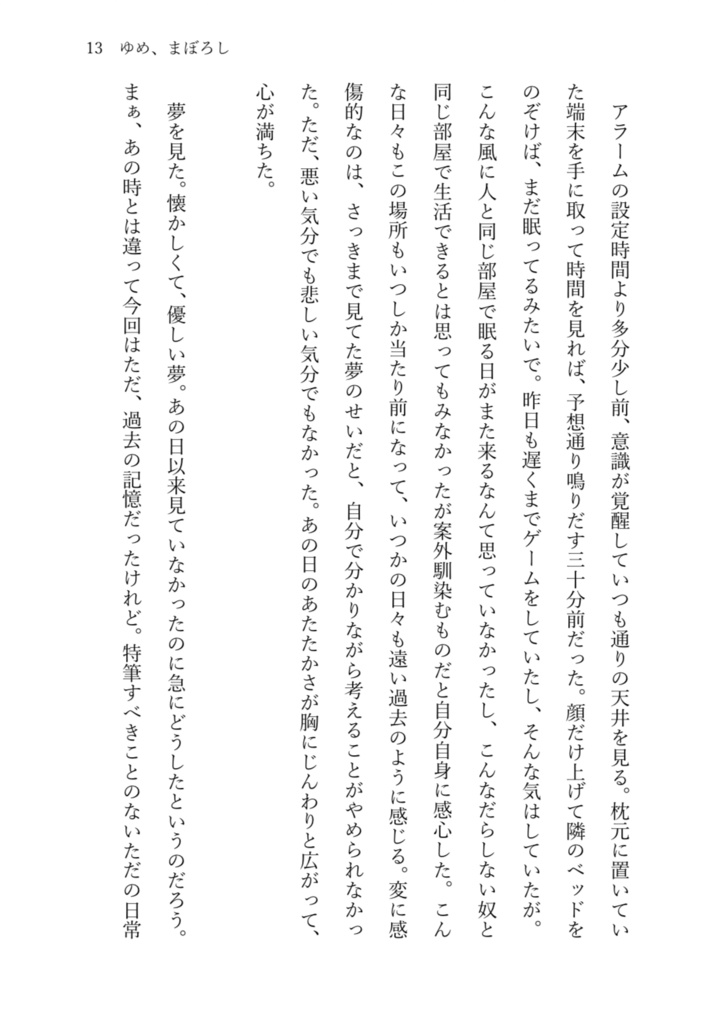 13 ゆめ、まぼろし
アラームの設定時間より多分少し前、意識が覚醒していつも通りの天井を見る。枕元に置いてい
た端末を手に取って時間を見れば、予想通り鳴りだす三十分前だった。顔だけ上げて隣のベッドを
のぞけば、まだ眠ってるみたいで。昨日も遅くまでゲームをしていたし、そんな気はしていたが。
こんな風に人と同じ部屋で眠る日がまた来るなんて思っていなかったし、こんなだらしない奴と
同じ部屋で生活できるとは思ってもみなかったが案外馴染むものだと自分自身に感心した。こん
な日々もこの場所もいつしか当たり前になって、いつかの日々も遠い過去のように感じる。変に感
傷的なのは、さっきまで見てた夢のせいだと、自分で分かりながら考えることがやめられなかっ
た。ただ、悪い気分でも悲しい気分でもなかった。あの日のあたたかさが胸にじんわりと広がって、
心が満ちた。
夢を見た。懐かしくて、優しい夢。あの日以来見ていなかったのに急にどうしたというのだろう。
まぁ、あの時とは違って今回はただ、過去の記憶だったけれど。特筆すべきことのないただの日常